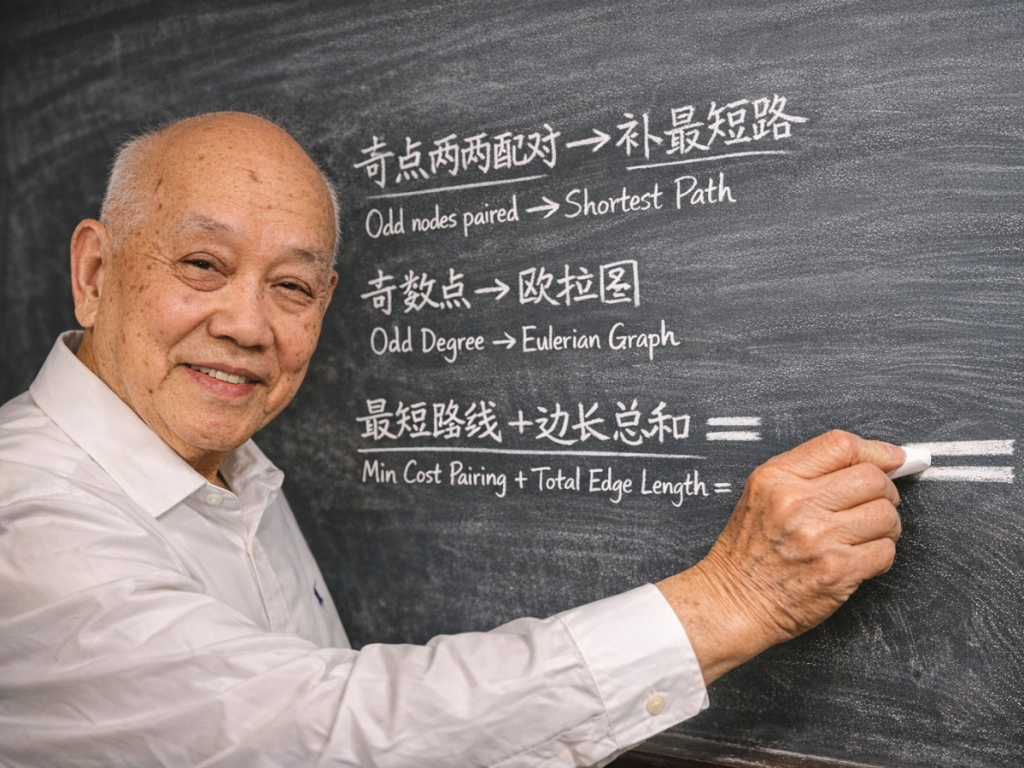 奇点两两配对→补最短路
Odd nodes paired → Shortest Path
奇数点→欧拉图
Odd Degree → Eulerian Graph
最短路线+边长总和 =
Min Cost Pairing + Total Edge Length =
=